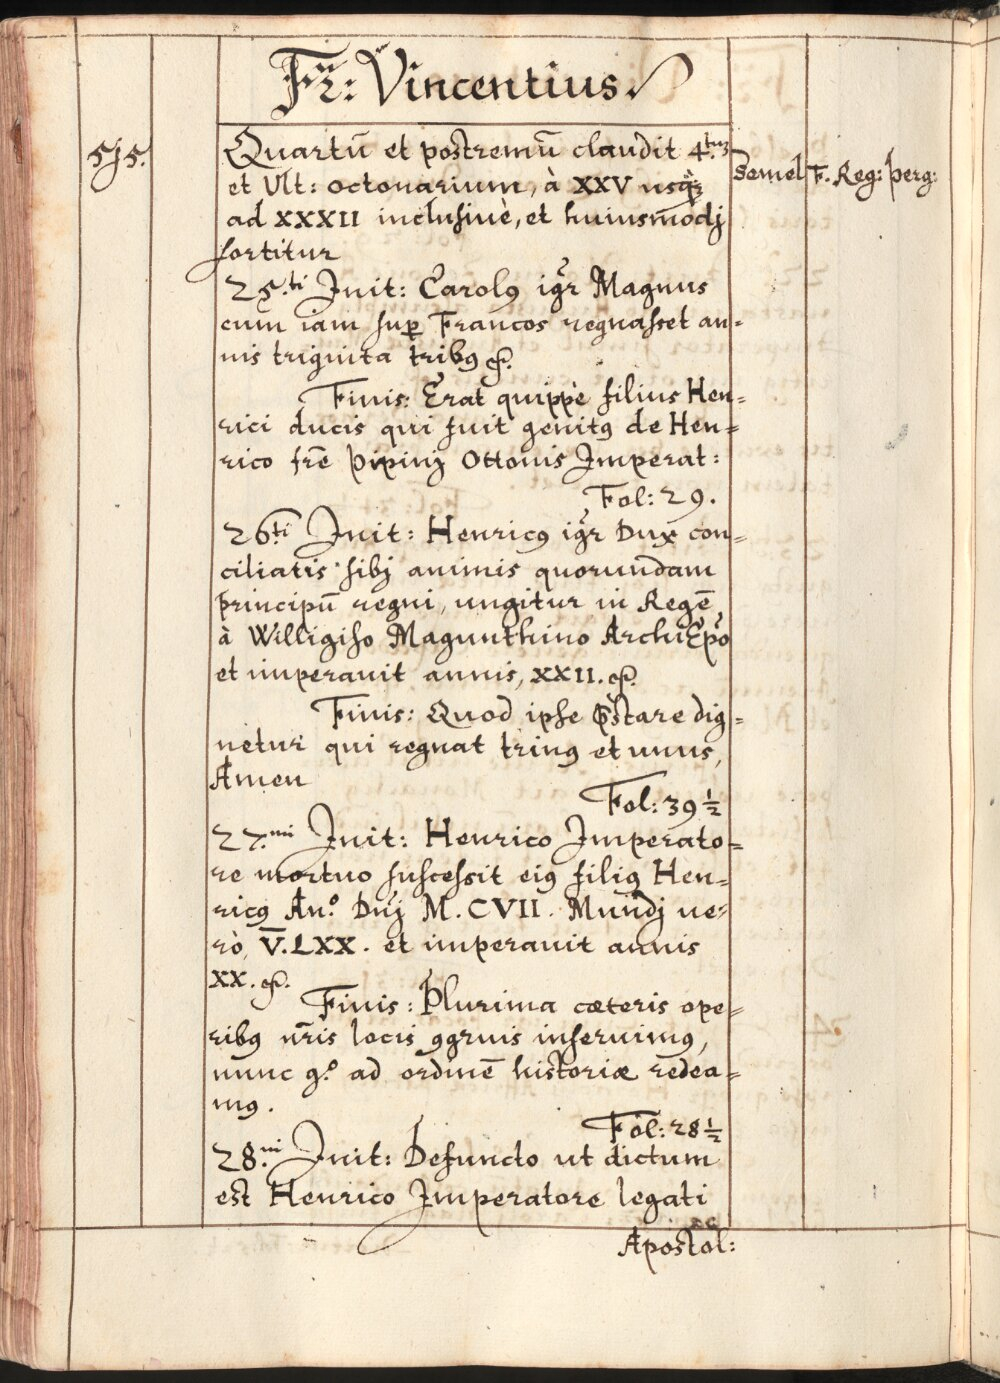 Fr̃: Vincentius.
515.
Quartũ et postremũ claudit 4.tus
Semel
F. Reg: perg:
et Ult: octonarium, à XXV usq̃
ad XXXII inclusiuè, et huiusmodj
sortitur
25.ti Init: Carolꝰ igr̃ Magnus
cum iam suꝑ Francos regnasset an=
nis triginta tribꝰ &.
Finis: Erat quippè filius Hen=
rici ducis qui fuit genitꝰ de Hen=
rico frẽ pipinj Ottonis Imperat:
Fol: 29.
26.ti Init: Henricꝰ igr̃ Dux con=
ciliatis sibj animis quorundam
principũ regni, ungitur in Regẽ
à Willigiso Magunthino ArchiEp̃o
et imperauit annis, XXII. &.
Finis: Quod ipse p̃stare dig=
netur qui regnat trinꝰ et unus,
Amen
Fol: 39 ½
27.mi Init: Henrico Imperato=
re mortuo suscessit eiꝰ filiꝰ Hen=
ricꝰ An.º Dn̄j M. CVII. Mundj ue=
rò, V̅.LXX. et imperauit annis
XX. &.
Finis: Plurima cæteris ope=
ribꝰ nr̃is locis ꝯgruis inseruimꝰ,
nunc g.º ad ordinẽ historiæ redea=
mꝰ.
Fol: 28 ½
28.ui Init: Defuncto ut dictum
est Henrico Imperatore legati
Apostol: